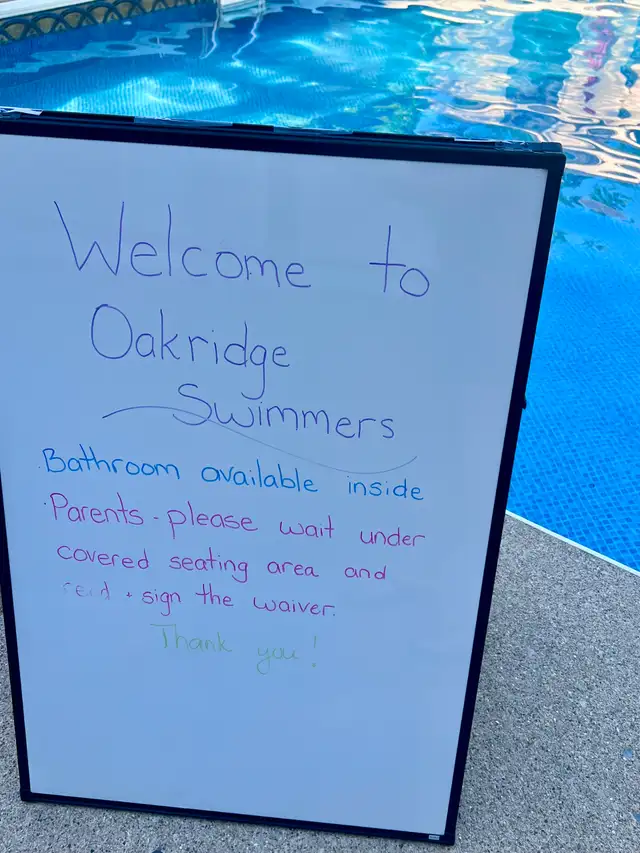 Welcome to
Oakridge
Swimmers
·Bathroom available inside
·Parents - please wait under
covered seating area and
read + sign the waiver.
Thank you!